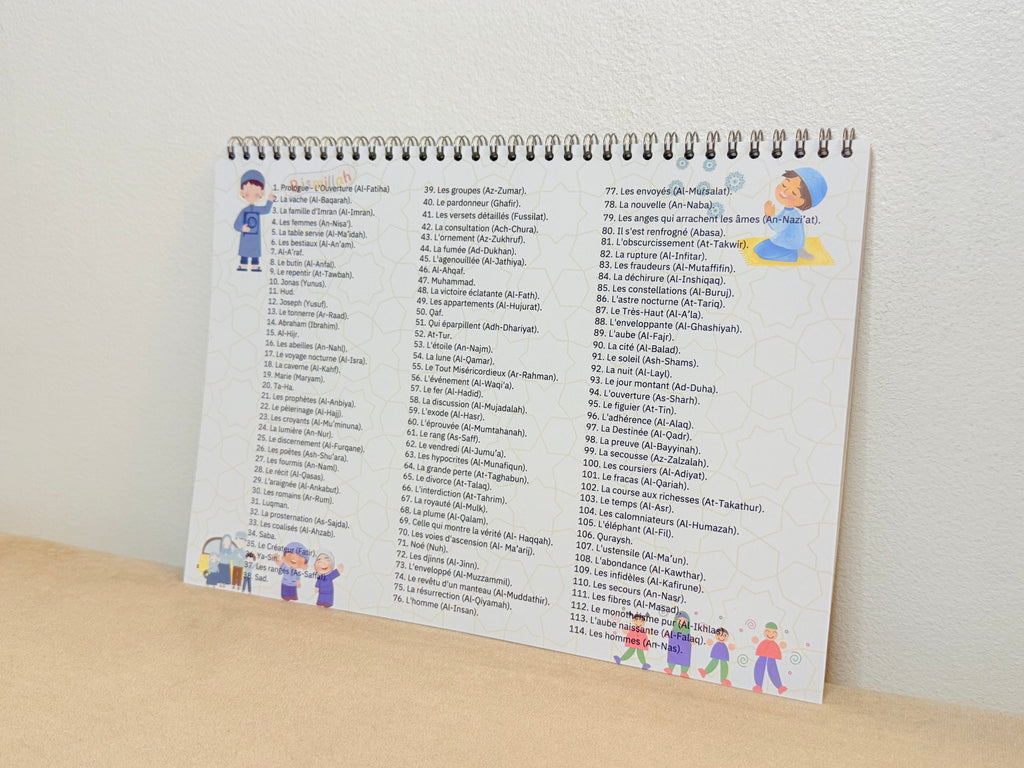 Bismillah
1. Prologue - L'Ouverture (Al-Fatiha)
2. La vache (Al-Baqarah).
3. La famille d'Imran (Al-Imran).
4. Les femmes (An-Nisa').
5. La table servie (Al-Ma'idah).
6. Les bestiaux (Al-An'am).
7. Al-A'raf.
8. Le butin (Al-Anfal).
9. Le repentir (At-Tawbah).
10. Jonas (Yunus).
11. Hud.
12. Joseph (Yusuf).
13. Le tonnerre (Ar-Raad).
14. Abraham (Ibrahim).
15. Al-Hijr.
16. Les abeilles (An-Nahl).
17. Le voyage nocturne (Al-Isra).
18. La caverne (Al-Kahf).
19. Marie (Maryam).
20. Ta-Ha.
21. Les prophètes (Al-Anbiya).
22. Le pèlerinage (Al-Hajj).
23. Les croyants (Al-Mu'minuna).
24. La lumière (An-Nur).
25. Le discernement (Al-Furqane).
26. Les poètes (Ash-Shu'ara).
27. Les fourmis (An-Naml).
28. Le récit (Al-Qasas).
29. L'araignée (Al-Ankabut).
30. Les romains (Ar-Rum).
31. Luqman.
32. La prosternation (As-Sajda).
33. Les coalisés (Al-Ahzab).
34. Saba.
35. Le Créateur (Fatir).
36. Ya-Sin.
37. Les rangés (As-Saffat).
38. Sad.
39. Les groupes (Az-Zumar).
40. Le pardonneur (Ghafir).
41. Les versets détaillés (Fussilat).
42. La consultation (Ach-Chura).
43. L'ornement (Az-Zukhruf).
44. La fumée (Ad-Dukhan).
45. L'agenouillée (Al-Jathiya).
46. Al-Ahqaf.
47. Muhammad.
48. La victoire éclatante (Al-Fath).
49. Les appartements (Al-Hujurat).
50. Qaf.
51. Qui éparpillent (Adh-Dhariyat).
52. At-Tur.
53. L'étoile (An-Najm).
54. La lune (Al-Qamar).
55. Le Tout Miséricordieux (Ar-Rahman).
56. L'événement (Al-Waqi'a).
57. Le fer (Al-Hadid).
58. La discussion (Al-Mujadalah).
59. L'exode (Al-Hasr).
60. L'éprouvée (Al-Mumtahanah).
61. Le rang (As-Saff).
62. Le vendredi (Al-Jumu'a).
63. Les hypocrites (Al-Munafiqun).
64. La grande perte (At-Taghabun).
65. Le divorce (At-Talaq).
66. L'interdiction (At-Tahrim).
67. La royauté (Al-Mulk).
68. La plume (Al-Qalam).
69. Celle qui montre la vérité (Al- Haqqah).
70. Les voies d'ascension (Al- Ma'arij).
71. Noé (Nuh).
72. Les djinns (Al-Jinn).
73. L'enveloppé (Al-Muzzammil),
74. Le revêtu d'un manteau (Al-Muddathir).
75. La résurrection (Al-Qiyamah).
76. L'homme (Al-Insan).
77. Les envoyés (Al-Mursalat).
78. La nouvelle (An-Naba).
79. Les anges qui arrachent les âmes (An-Nazi'at).
80. Il s'est renfrogné (Abasa).
81. L'obscurcissement (At-Takwir).
82. La rupture (Al-Infitar).
83. Les fraudeurs (Al-Mutaffifin).
84. La déchirure (Al-Inshiqaq).
85. Les constellations (Al-Buruj).
86. L'astre nocturne (At-Tariq).
87. Le Très-Haut (Al-A'la).
88. L'enveloppante (Al-Ghashiyah).
89. L'aube (Al-Fajr).
90. La cité (Al-Balad).
91. Le soleil (Ash-Shams).
92. La nuit (Al-Layl).
93. Le jour montant (Ad-Duha).
94. L'ouverture (As-Sharh).
95. Le figuier (At-Tin).
96. L'adhérence (Al-Alaq).
97. La Destinée (Al-Qadr).
98. La preuve (Al-Bayyinah).
99. La secousse (Az-Zalzalah).
100. Les coursiers (Al-Adiyat).
101. Le fracas (Al-Qariah).
102. La course aux richesses (At-Takathur).
103. Le temps (Al-Asr).
104. Les calomniateurs (Al-Humazah).
105. L'éléphant (Al-Fil).
106. Quraysh.
107. L'ustensile (Al-Ma'un).
108. L'abondance (Al-Kawthar).
109. Les infidèles (Al-Kafirune).
110. Les secours (An-Nasr).
111. Les fibres (Al-Masad).
112. Le monothéisme pur (Al-Ikhlas).
113. L'aube naissante (Al-Falaq).
114. Les hommes (An-Nas).